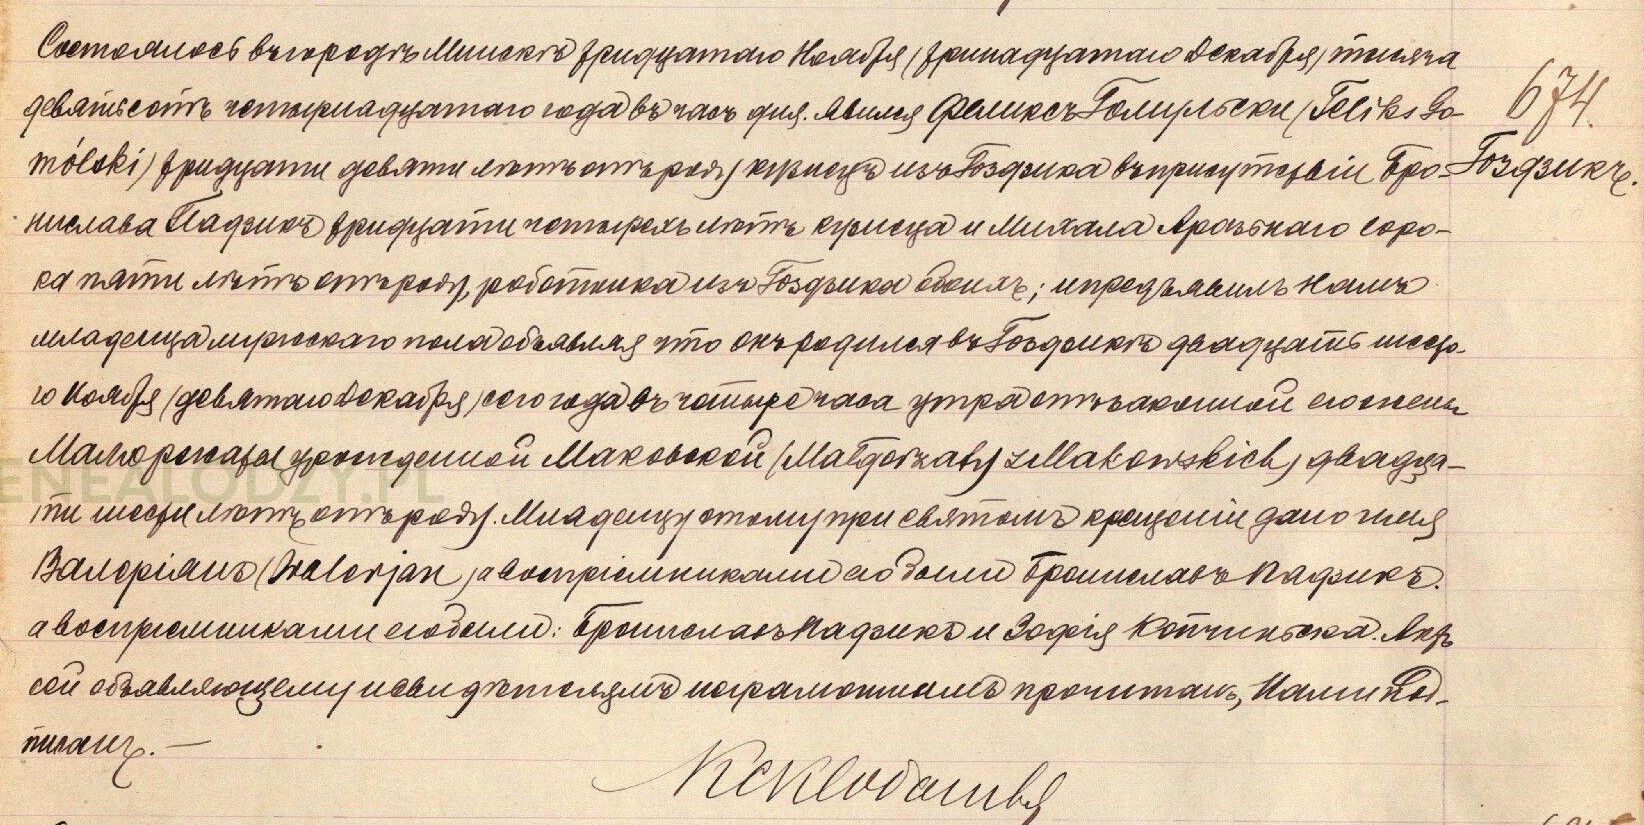 Состоялось въ городѣ Минскѣ тридцатаго Ноября /тринадцатаго Декабря/ тысяча
девятьсотъ четырнадцатаго года въ часъ дня. Явился Феликсъ Гомульски /Feliks Go-
mólski/ тридцати девяти лѣтъ отъ роду кузнецъ изъ Гоздзика въ присутствіи Бро-
нислава Падзикъ тридцати четырехъ лѣтъ кузнеца и Михала Араз­наго соро-
ка пяти лѣтъ отъ роду, работника изъ Гоздзика обоихъ; и предъявилъ Намъ
младенца мужескаго пола объявляя что онъ родился въ Гоздзикѣ двадцать шесто-
го Ноября /девятаго Декабря/ сего года въ четыре часа утра отъ законной его жены
Малгоржаты урожденной Маковской /Małgorzaty z Makowskich/ двадца-
ти шести лѣтъ отъ роду. Младенцу этому при святомъ крещеніи дано имя
Валеріянъ /Walerjan/ а воспріемниками его были Брониславъ Падзикъ.
а воспріемниками его были: Брониславъ Падзикъ и Зофія Копчиньска. Актъ
сей объявляющему и свидѣтелямъ неграмотнымъ прочитанъ, Нами под-
писанъ. —
674.
Гоздзикъ.
GENEALODZY.PL